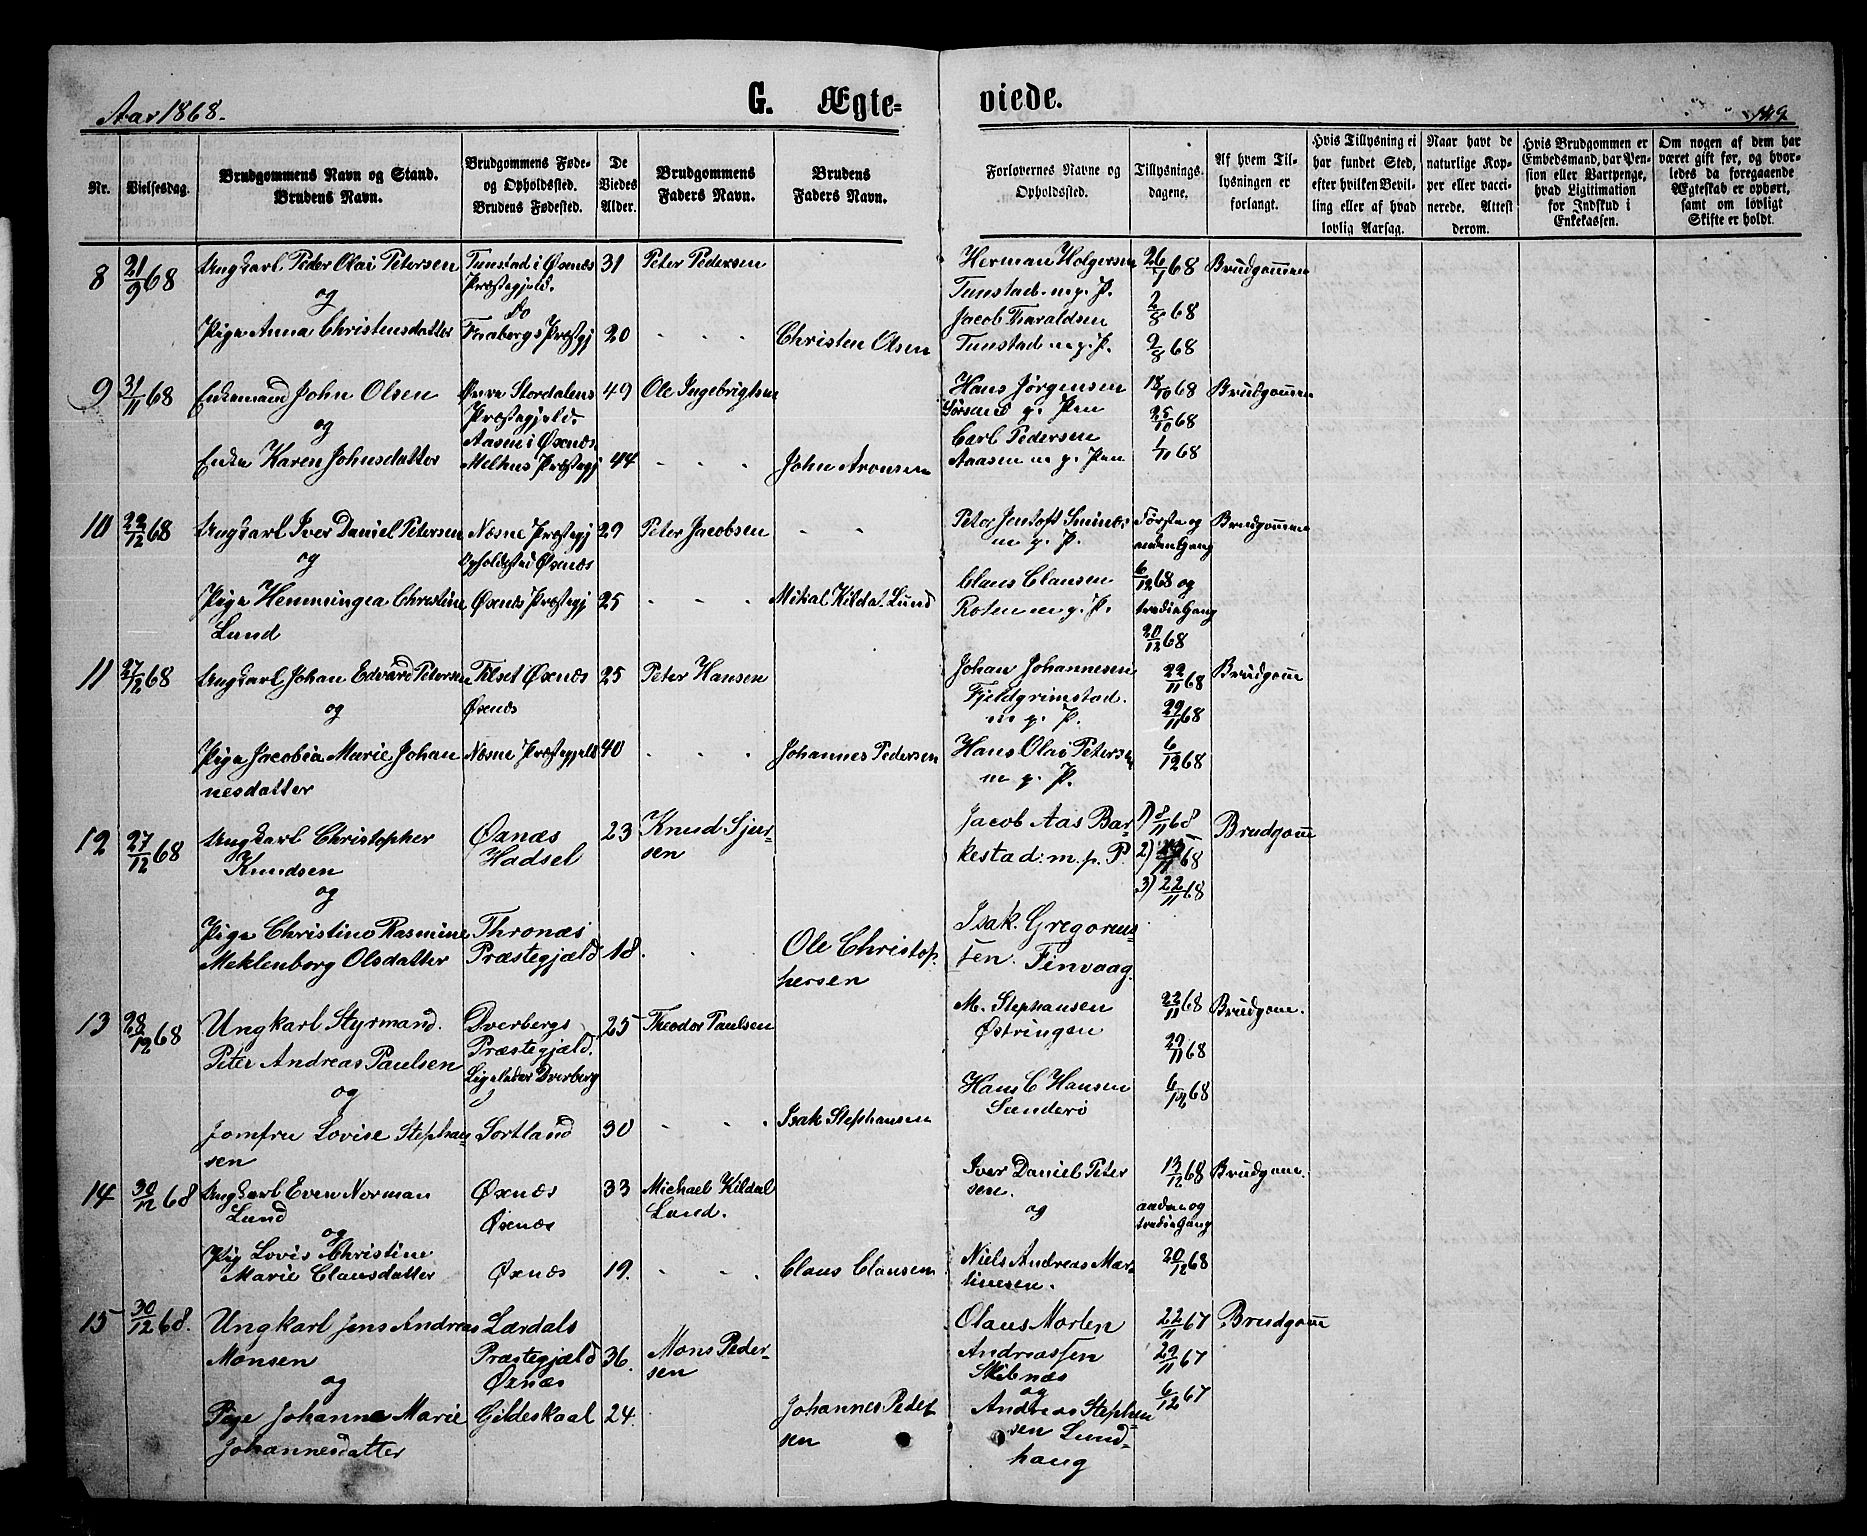 Aar 1868.
G. Ægte=
viede.
Nr.
Vielsesdag.
Brudgommens Navn og Stand.
Brudens Navn.
Brudgommens Føde-
og Opholdssted.
Brudens Fødested.
De
Viedes
Alder.
Brudgommens
Faders Navn.
Brudens
Faders Navn.
Forlovernes Navne og
Opholdssted.
Tillysnings-
dagene.
Af hvem Til-
lysningen er
forlangt.
Hvis Tillysning ei
har fundet Sted,
efter hvilken Bevil-
ling eller af hvad
lovlig Aarsag.
Naar havt de
naturlige Kop-
per eller vacci-
nerede. Attest
derom.
Hvis Brudgommen er
Embedsmand, har Pen-
sion eller Vartpenge,
hvad Ligitimation
for Indskud i
Enkekassen.
Om nogen af dem har
været gift før, og hvor-
ledes da foregaaende
Ægteskab er ophørt,
samt om lovligt
Skifte er holdt.
8 21/9 68 Ungkarl Peder Olai Petersen Tunstad i Øxnæs 31 Peter Pedersen Herman Holgersen 26/7 68 Brudgommen
og Præstegjeld. Tunstad m. p. P.
do Jacob Haraldsen 2/8 68
Pige Anna Christensdatter Præstegj 20 " " Christen Olsen Tunstad m. p. P. 9/8 68
9 31/11 68 Enkemand John Olsen Stordalens 49 Ole Ingebrigtsen Hans Jørgensen 18/10 68 Brudgommen
og Præstegjeld. p. Pen 25/10 68
Aasen i Øxnæs Carl Pedersen
Enke Karen Johnsdatter Melhus Præstegj 44 " " John Aronsen Aaasen m p. Pen 1/11 68
10 22/12 68 Ungkarl Iver Daniel Petersen Næsne Præstegj 29 Peter Jacobsen " " Peter Jentoft Smines Første og Brudgommen
og Opholdsted Øxnæs m p. P. anden Gang
Pige Hemmingea Christine Øxnæs Præstegj 25 " " Mikal Kildal Lund Claus Clausen 6/12 68 og
Lund Roten m p. P. tredie Gang
20/12 68
11 27/12 68 Ungkarl Johan Edvard Petersen Tilset Øxnæs 25 Peter Hansen Johan Johannesen 22/11 68 Brudgomm
og Øxnæs Fjeldgrimstad.
m p. P. 29/11 68
Pige Jacobia Marie Johan Næsne Præstegjeld 40 " " Johannes Pedersen Hans Olai Petersen 6/12 68
nesdatter m p. P.
12 27/12 68 Ungkarl Christopher Øxnæs 23 Knud Sjur- Jacob Aas Bar- 1) 8/11 68 Brudgomm
Knudsen Hadsel sen kestad: m. p. P. 2) 15/11 68
og 3) 22/11 68
Pige Christine Rasmine Thronæs Isak. Gregorius-
Meklenborg Olsdatter Præstegjæld 18. " Ole Christop- sen. Finvaag.
hersen
13 28/12 68 Ungkarl Styrmand. Dverbergs 25 Theodor Paulsen M. Stephansen 22/11 68 Brudgom.
Peter Andreas Paulsen Præstegjæld. Østringen 29/11 68
og Ligeledes Dverberg Hans C Hansen 6/12 68
Jomfru Lovise Stephan- Sortland 30 " " " Isak Stephansen Sanderö
sen
14 30/12 68 Ungkarl Even Norman Øxnæs 33 Michael Kildal Iver Daniel Peter 13/12 68 Brudgom.
Lund Øxnæs Lund. sen. og
og tredie Gang
Pig Lovis Christine Niels Andreas Mar- 20/12 68
Marie Clausdatter Øxnæs 19. " " Claus Clausen tinesen.
15 30/12 68. Ungkarl Jens Andreas Lærdals Olaus Morten 22/11 67 Brudgomm
Monsen Præstegjæld 36. Mons Peder- Andreassen 29/11 67
og Øxnæs sen Skibnæs
og 6/12 67
Pige Johanna Marie Gildeskaal 24. Johannes Peder Andreas Stephan-
Johannesdatter sen sen Lund-
haug